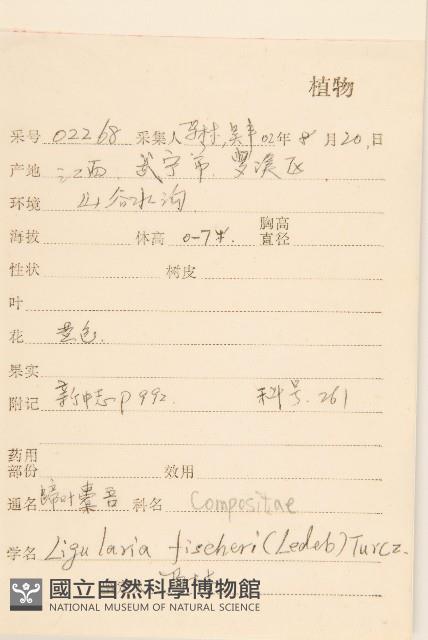 植物
采号 02268 采集人 02年8月20日
产地 江西 武宁市 罗溪区
环境 山谷水沟
海拔 体高 0-7米 胸高直径
性状 树皮
叶
花 黄色
果实
附记 p992 科号.261
药用部份 效用
通名 蹄叶橐吾 科名 Compositae
学名 Ligularia fischeri (Ledeb) Turcz.
國立自然科學博物館
NATIONAL MUSEUM OF NATURAL SCIENCE